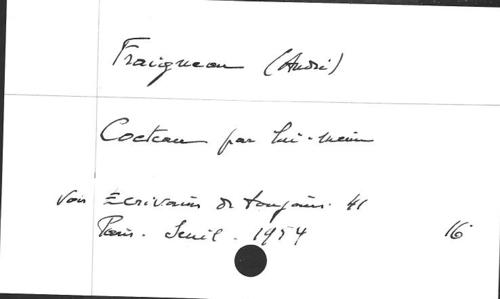 Fraigneau (André)
Cocteau par lui-même
Voir Ecrivains de toujours. 41
Paris. Seuil. 1957 16°